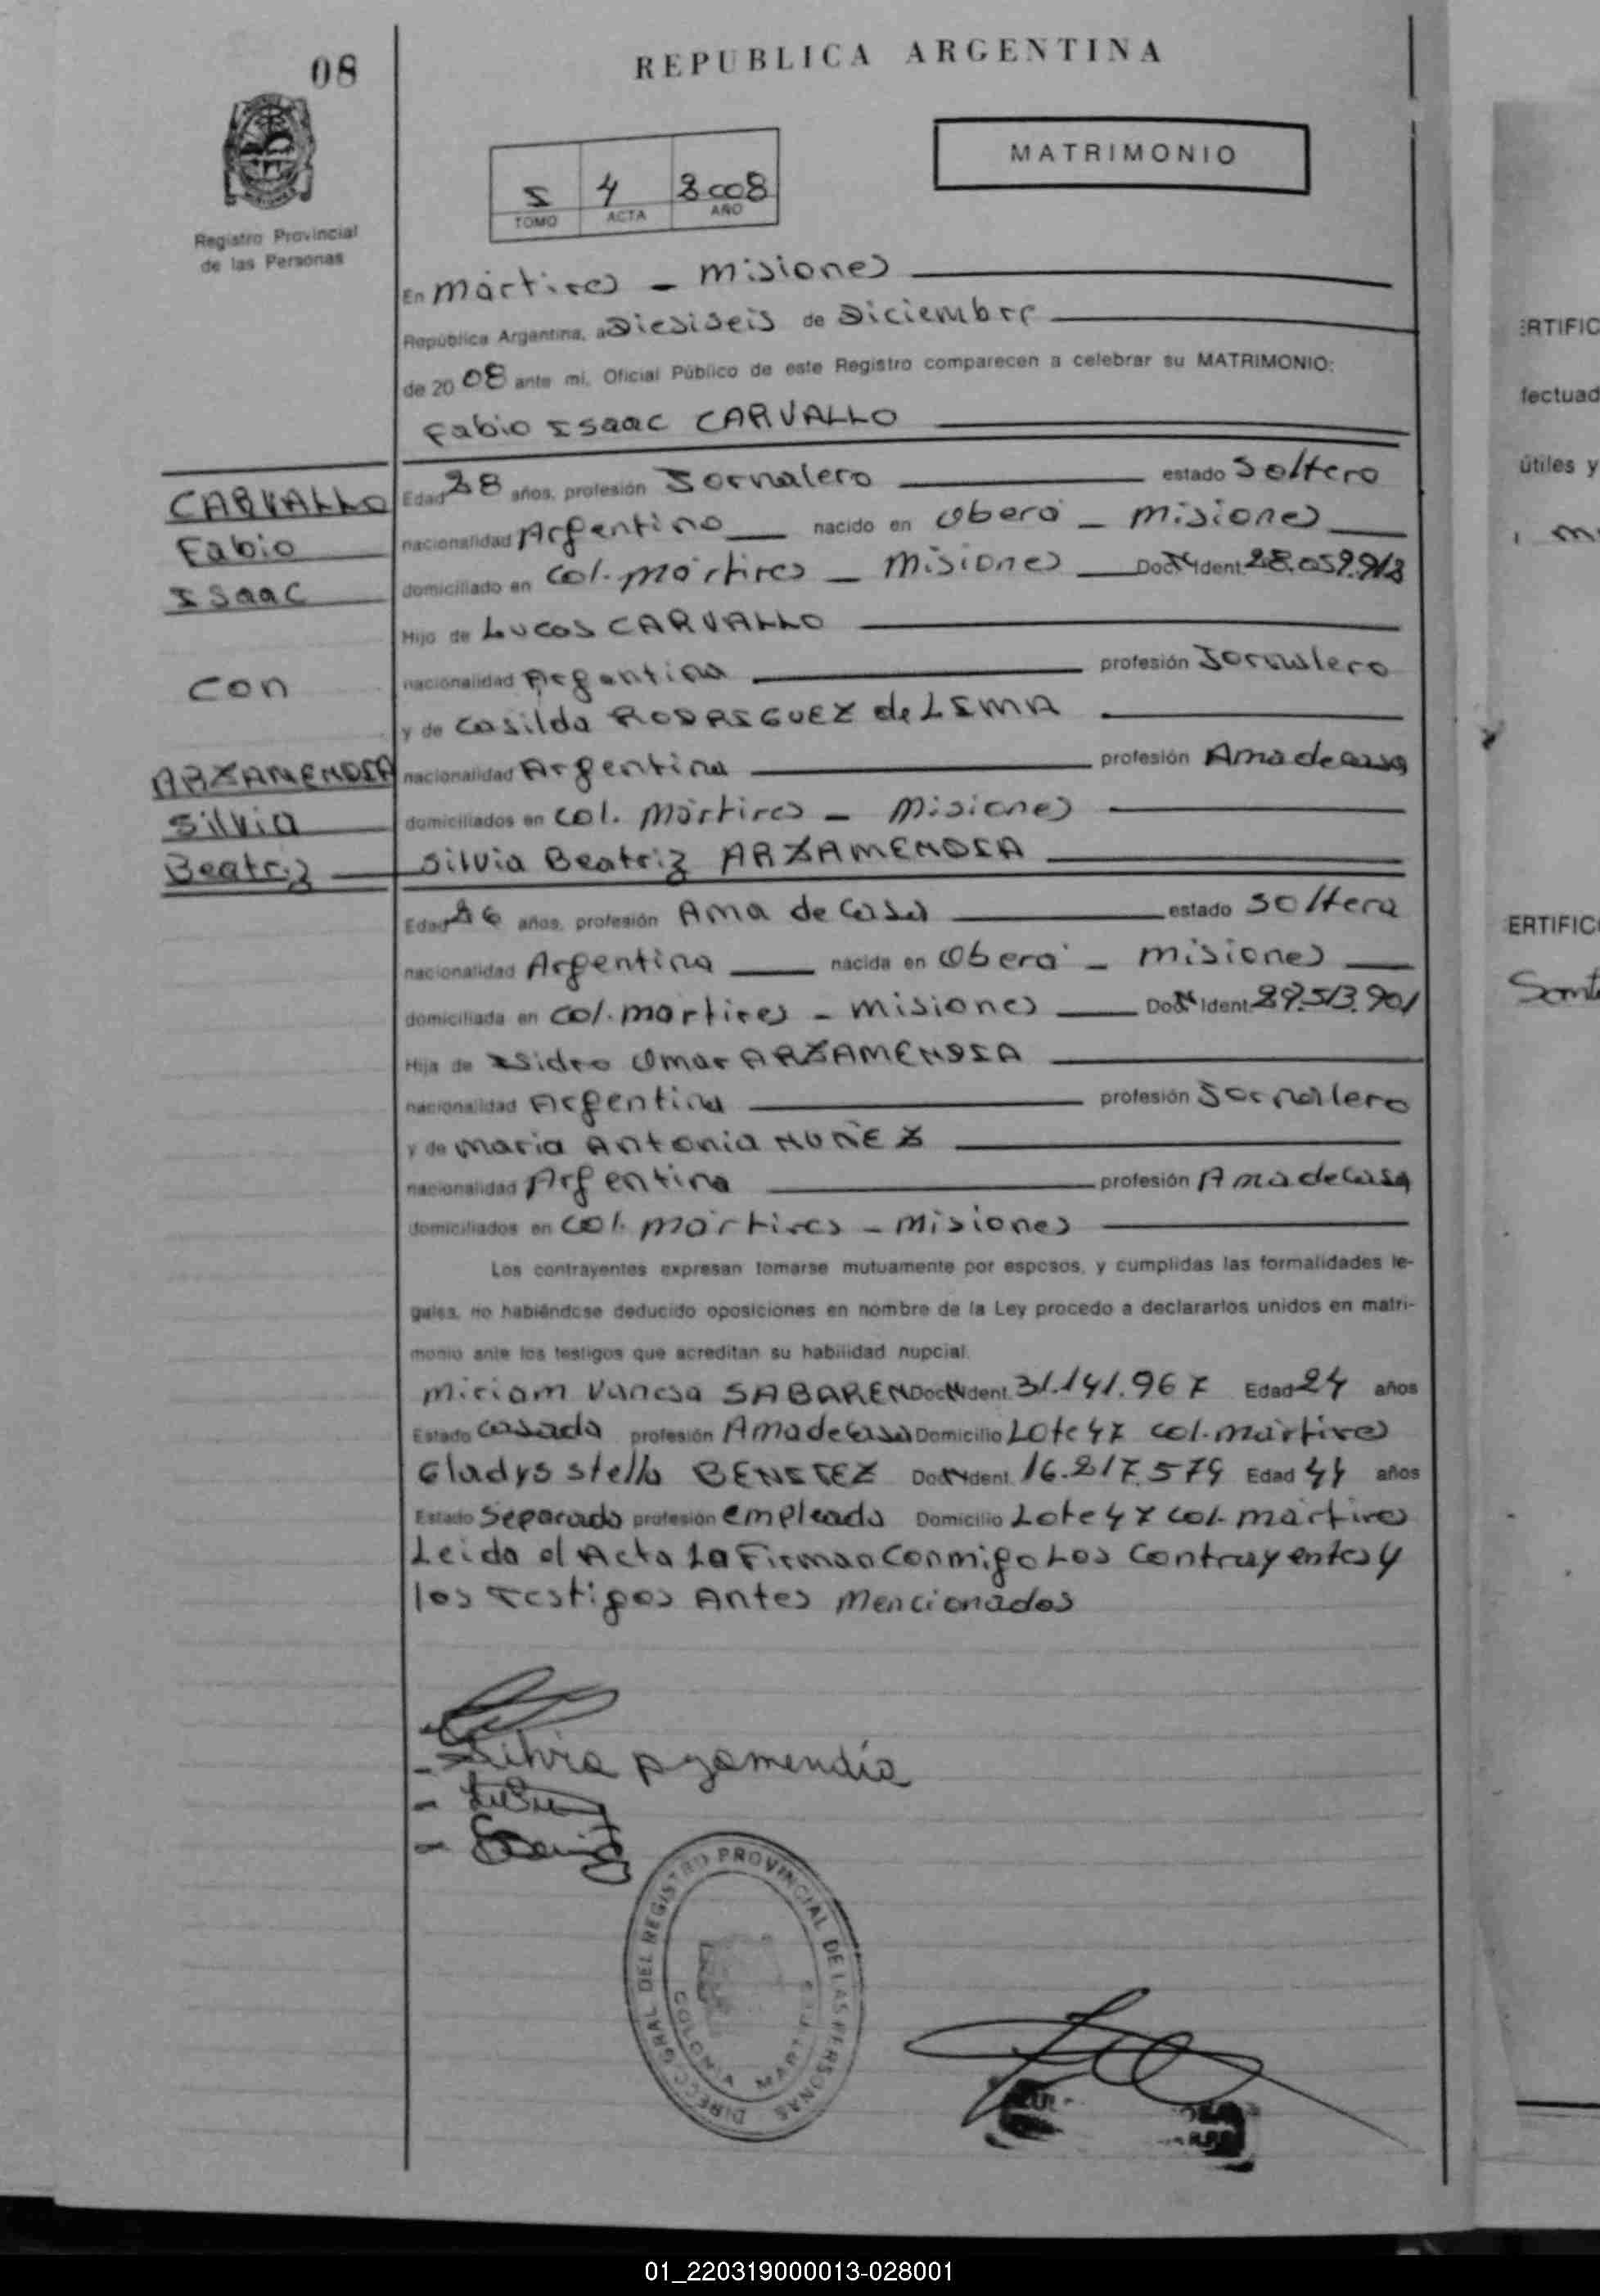 08
REPUBLICA ARGENTINA
MATRIMONIO
I 4 2008
TOMO ACTA AÑO
Registro Provincial
de las Personas
En Mártires - Misiones
República Argentina, a Diesiseis de Diciembre
de 2008 ante mi, Oficial Público de este Registro comparecen a celebrar su MATRIMONIO:
Fabio Isaac CARVALLO
CARVALLO
Fabio
Isaac
con
ARZAMENDIA
Silvia
Beatriz
Edad 28 años, profesión Jornalero estado Soltero
nacionalidad Argentino nacido en Oberá - Misiones
domiciliado en Col. Mártires - Misiones Doc. N Ident. 28.059.913
Hijo de Lucas CARVALLO
nacionalidad Argentina profesión Jornalero
y de Casilda RODRIGUEZ de LIMA
nacionalidad Argentina profesión Ama de casa
domiciliados en Col. Mártires - Misiones
Silvia Beatriz ARZAMENDIA
Edad 26 años, profesión Ama de Casa estado Soltera
nacionalidad Argentina nacida en Oberá - Misiones
domiciliada en Col. Martires - Misiones Doc. N Ident. 29.513.901
Hija de Isidro Omar ARZAMENDIA
nacionalidad Argentina profesión Jornalero
y de Maria Antonia NUÑEZ
nacionalidad Argentina profesión Ama de Casa
domiciliados en Col. Mártires - Misiones
Los contrayentes expresan tomarse mutuamente por esposos, y cumplidas las formalidades le-
gales, no habiéndose deducido oposiciones en nombre de la Ley procedo a declararlos unidos en matri-
monio ante los testigos que acreditan su habilidad nupcial.
Miriam Vanesa SABAREN Doc. N Ident. 31.141.967 Edad 24 años
Estado Casada profesión Ama de Casa Domicilio Lote 47 Col. Mártires
Gladys Stella BENITEZ Doc. N Ident. 16.217.579 Edad 44 años
Estado Separada profesión empleada Domicilio Lote 47 Col. Mártires
Leida el Acta La Firman Conmigo Los Contrayentes y
los Testigos Antes Mencionados
Silvia Arzamendia
DIRECC. GRAL. DEL REGISTRO PROVINCIAL DE LAS PERSONAS
COLONIA MARTIRES
ERTIFIC
fectuad
útiles y
ERTIFIC
01_220319000013-028001